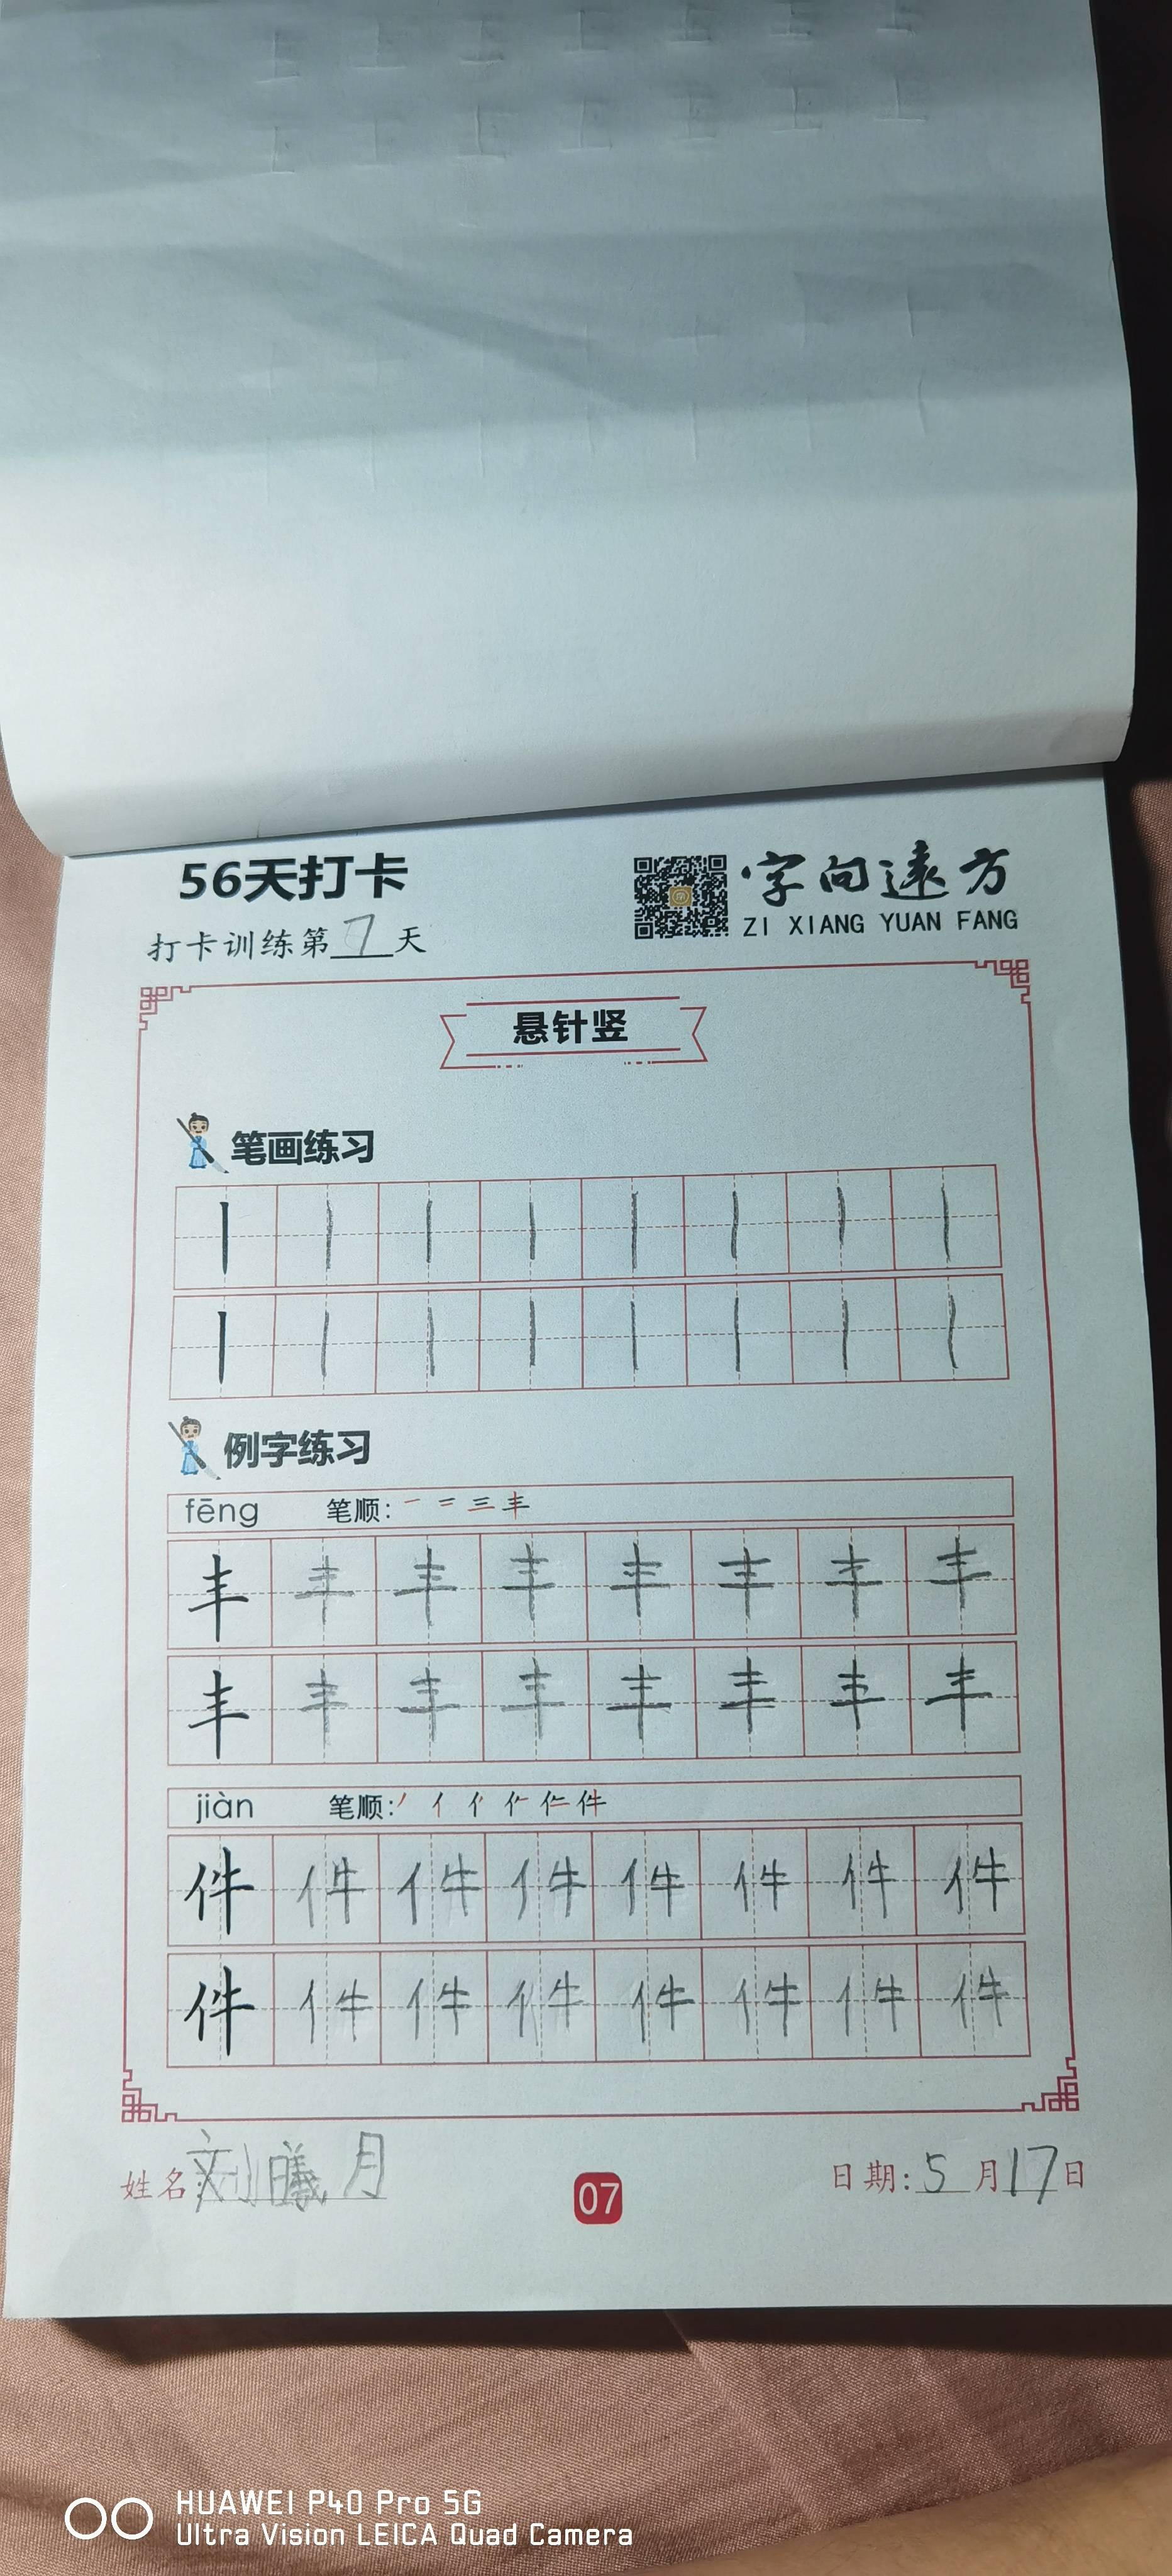 56天打卡
字向远方
ZI XIANG YUAN FANG
打卡训练第7天
悬针竖
笔画练习
丨丨丨丨丨丨丨丨
丨丨丨丨丨丨丨丨
例字练习
fēng 笔顺: 一 二 三 丰
丰丰丰丰丰丰丰丰
丰丰丰丰丰丰丰丰
jiàn 笔顺:
件件件件件件件件
件件件件件件件件
姓名:刘曦月
07
日期:5月17日
HUAWEI P40 Pro 5G
Ultra Vision LEICA Quad Camera